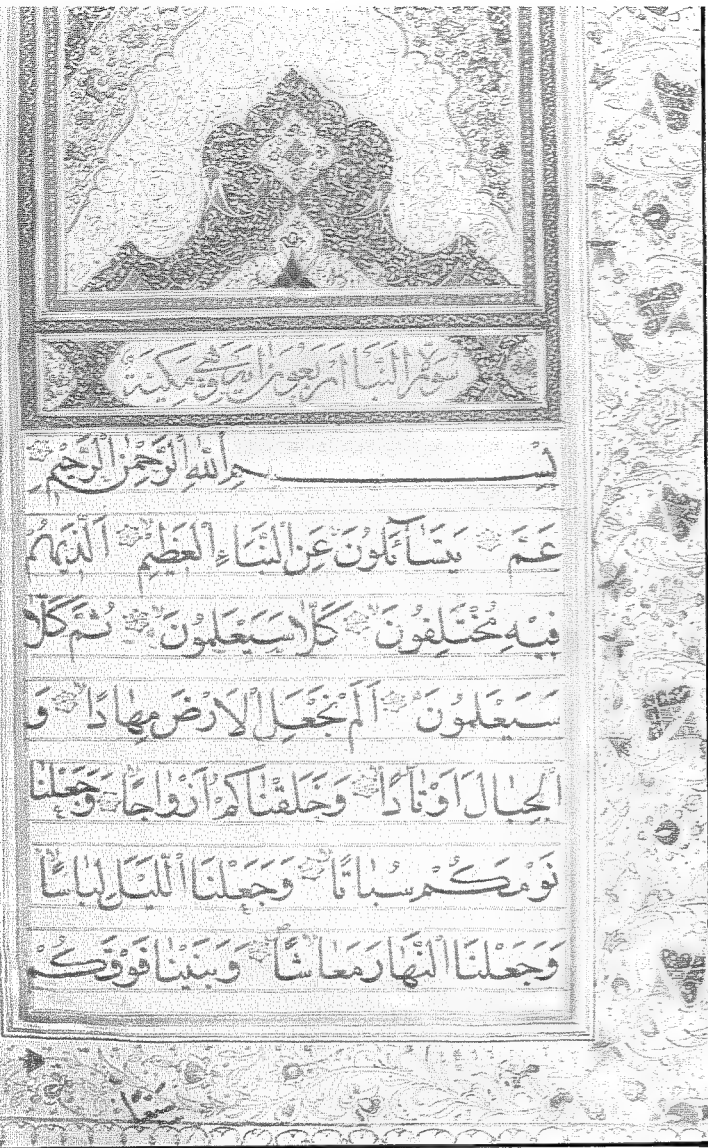 سورة النبأ اربعون اية وهي مكية
بِسْمِ اللهِ الرَّحْمٰنِ الرَّحِيمِ
عَمَّ يَتَسَآئَلُونَ عَنِ النَّبَاءِ الْعَظِيمِ اَلَّذِي هُمْ
فِيهِ مُخْتَلِفُونَ كَلَّا سَيَعْلَمُونَ ثُمَّ كَلَّا
سَيَعْلَمُونَ اَلَمْ نَجْعَلِ الْاَرْضَ مِهَادًا وَ
الْجِبَالَ اَوْتَادًا وَخَلَقْنَاكُمْ اَزْوَاجًا وَجَعَلْنَا
نَوْمَكُمْ سُبَاتًا وَجَعَلْنَا اللَّيْلَ لِبَاسًا
وَجَعَلْنَا النَّهَارَ مَعَاشًا وَبَنَيْنَا فَوْقَكُمْ
سبعا